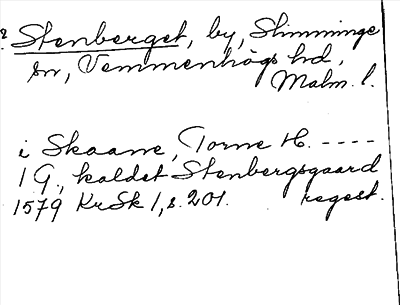 Stenberget, by, Slimminge
sn, Vemmenhögs hd,
Malm. l.
i Skaane, Torne H. ----
1 G., kaldet Stenbergsgaard
1579 KrSk 1, s. 201. regest.